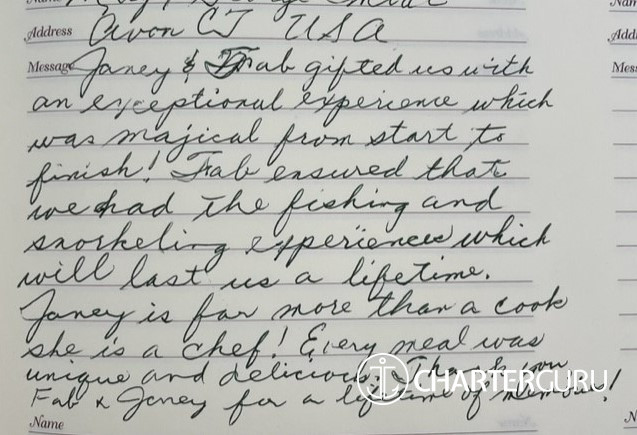 Address Avon CT USA
Message Janey & Fab gifted us with
an exceptional experience which
was majical from start to
finish! Fab ensured that
we had the fishing and
snorkeling experiences which
will last us a lifetime.
Janey is far more than a cook
she is a chef! Every meal was
unique and delicious. Thank you
Fab & Janey for a lifetime of memories!
CHARTERGURU
Name